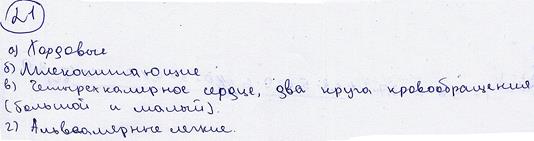 21
а) Хордовые
б) Млекопитающие
в) Четырехкамерное сердце, два круга кровообращения
(большой и малый).
г) Альвеолярные легкие.